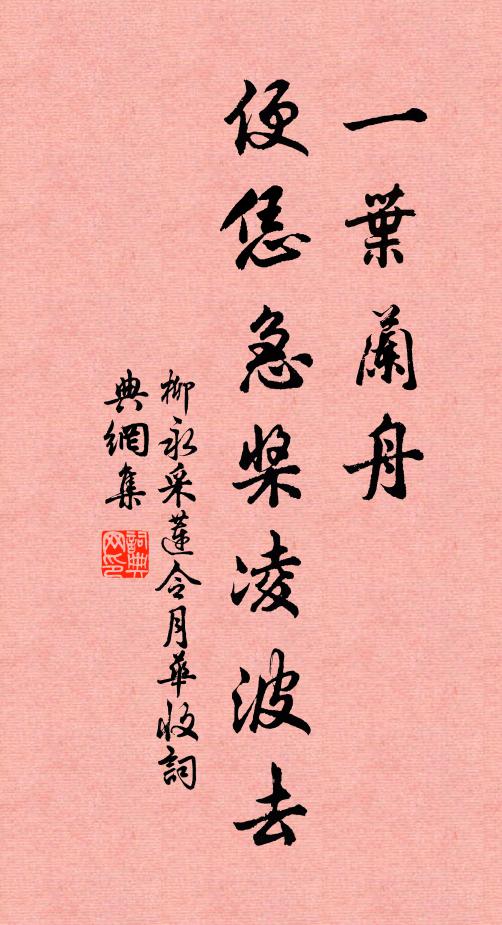 一葉蘭舟
便恁急槳凌波去
柳永采蓮令月華收詞
典網集
詞典网印